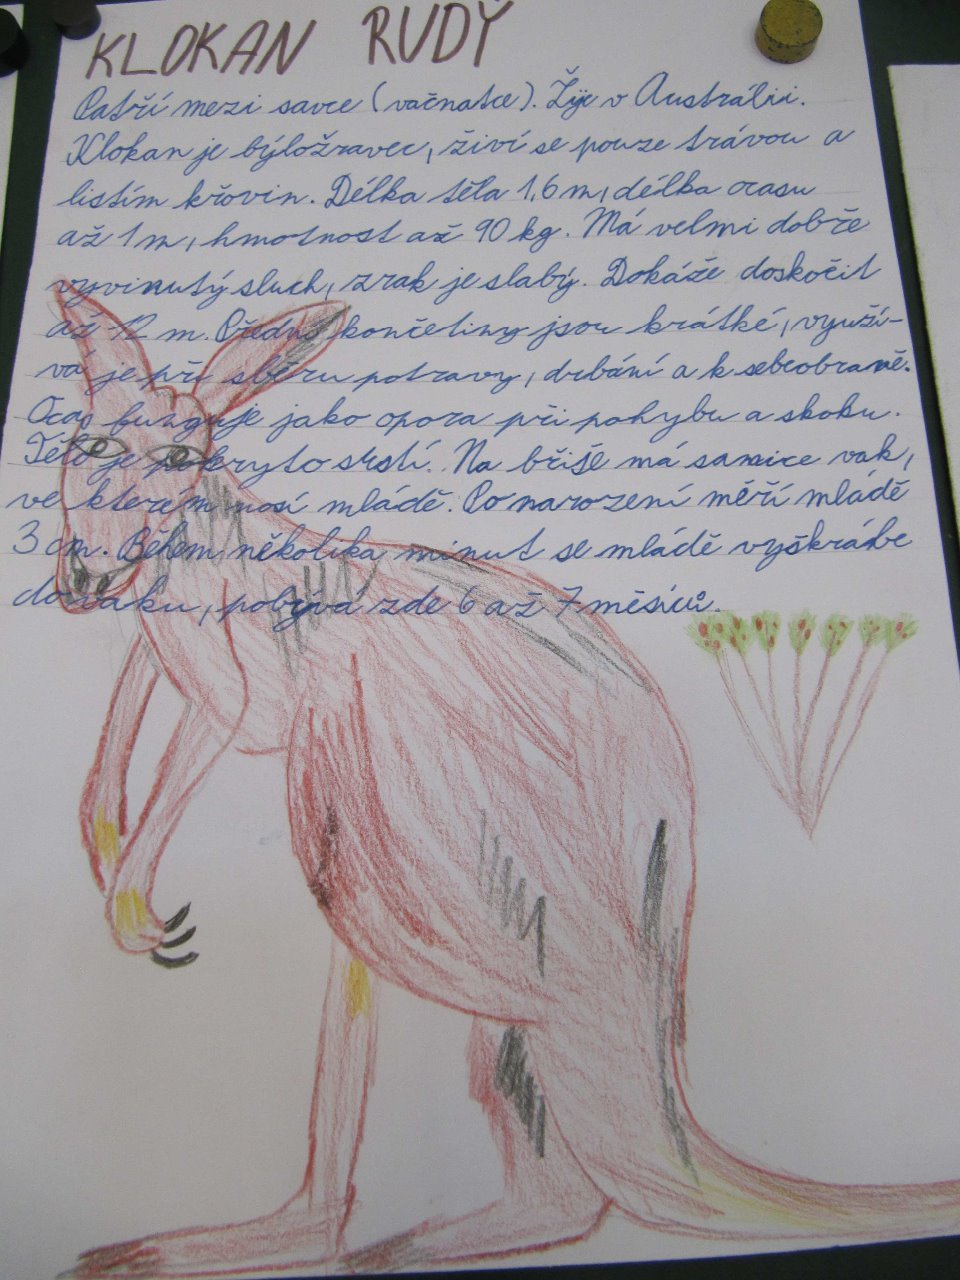 KLOKAN RUDÝ
Patří mezi savce (vačnatce). Žije v Austrálii.
Klokan je býložravec, živí se pouze trávou a
listím křovin. Délka těla 1,6 m, délka ocasu
až 1 m, hmotnost až 90 kg. Má velmi dobře
vyvinutý sluch, zrak je slabý. Dokáže doskočit
až 12 m. Přední končetiny jsou krátké, využí-
vá je při sběru potravy, drbání a k sebeobraně.
Ocas funguje jako opora při pohybu a skoku.
Tělo je pokryto srstí. Na břiše má samice vak,
ve kterém nosí mládě. Po narození měří mládě
3 cm. Během několika minut se mládě vyškrábe
do vaku, pobývá zde 6 až 7 měsíců.